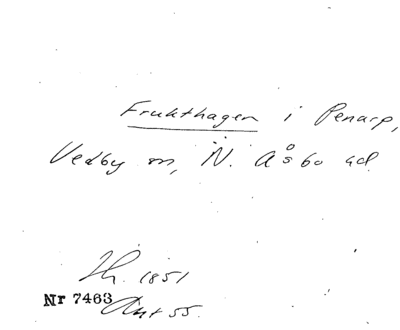 Frukthagen i Penarp,
Vedby sn, N. Åsbo hd.
Th. 1851
Nr 7463 Ant 55.